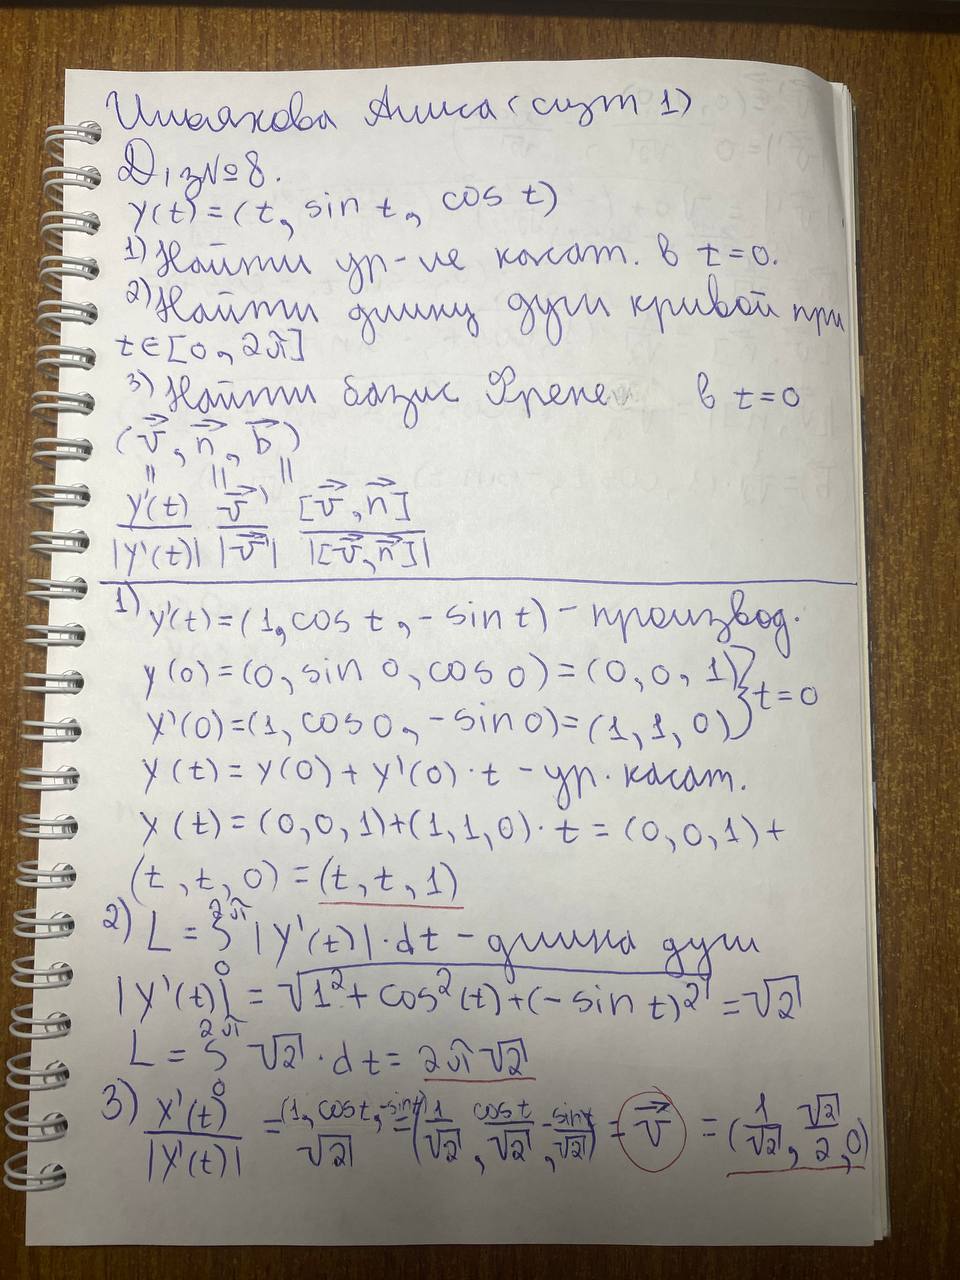 Алиса (сизт 1)
Д/з №8.
γ(t) = (t, sin t, cos t)
1) Найти ур-ие касат. в t=0.
2) Найти длину дуги кривой при
t ∈ [0, 2π]
3) Найти базис Френе в t=0
(v⃗, n⃗, b⃗)
γ'(t)/|γ'(t)| v⃗'/|v⃗'| [v⃗, n⃗]/|[v⃗, n⃗]|
1) γ'(t) = (1, cos t, -sin t) - производ.
γ(0) = (0, sin 0, cos 0) = (0, 0, 1)
γ'(0) = (1, cos 0, -sin 0) = (1, 1, 0) } t=0
γ(t) = γ(0) + γ'(0)·t - ур. касат.
γ(t) = (0,0,1)+(1,1,0)·t = (0,0,1)+
(t, t, 0) = (t, t, 1)
2) L = ∫₀^2π |γ'(t)|·dt - длина дуги
|γ'(t)| = √(1² + cos²(t) + (-sin t)²) = √2
L = ∫₀^2π √2 · dt = 2π√2
3) γ'(t)/|γ'(t)| = (1, cos t, -sin t)/√2 = (1/√2, cos t/√2, -sin t/√2) = v⃗ = (1/√2, √2/2, 0)